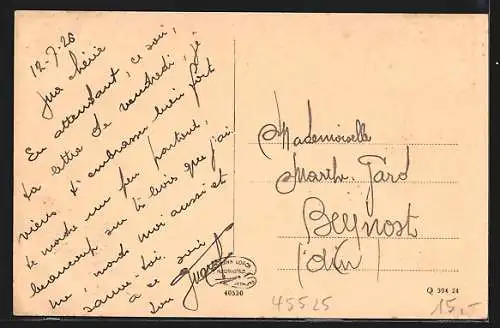 12-7-20
Ma chérie
En attendant, ce soir,
ta lettre de vendredi, je
viens t'embrasser bien fort
te mordre un peu partout,
beaucoup sur tes bras que j'ai
mords moi aussi et
sauve-toi.
à ce soir
ton
Mademoiselle
Gard
Beynost
(Ain)
40530
Q 394 24
45525
15,-